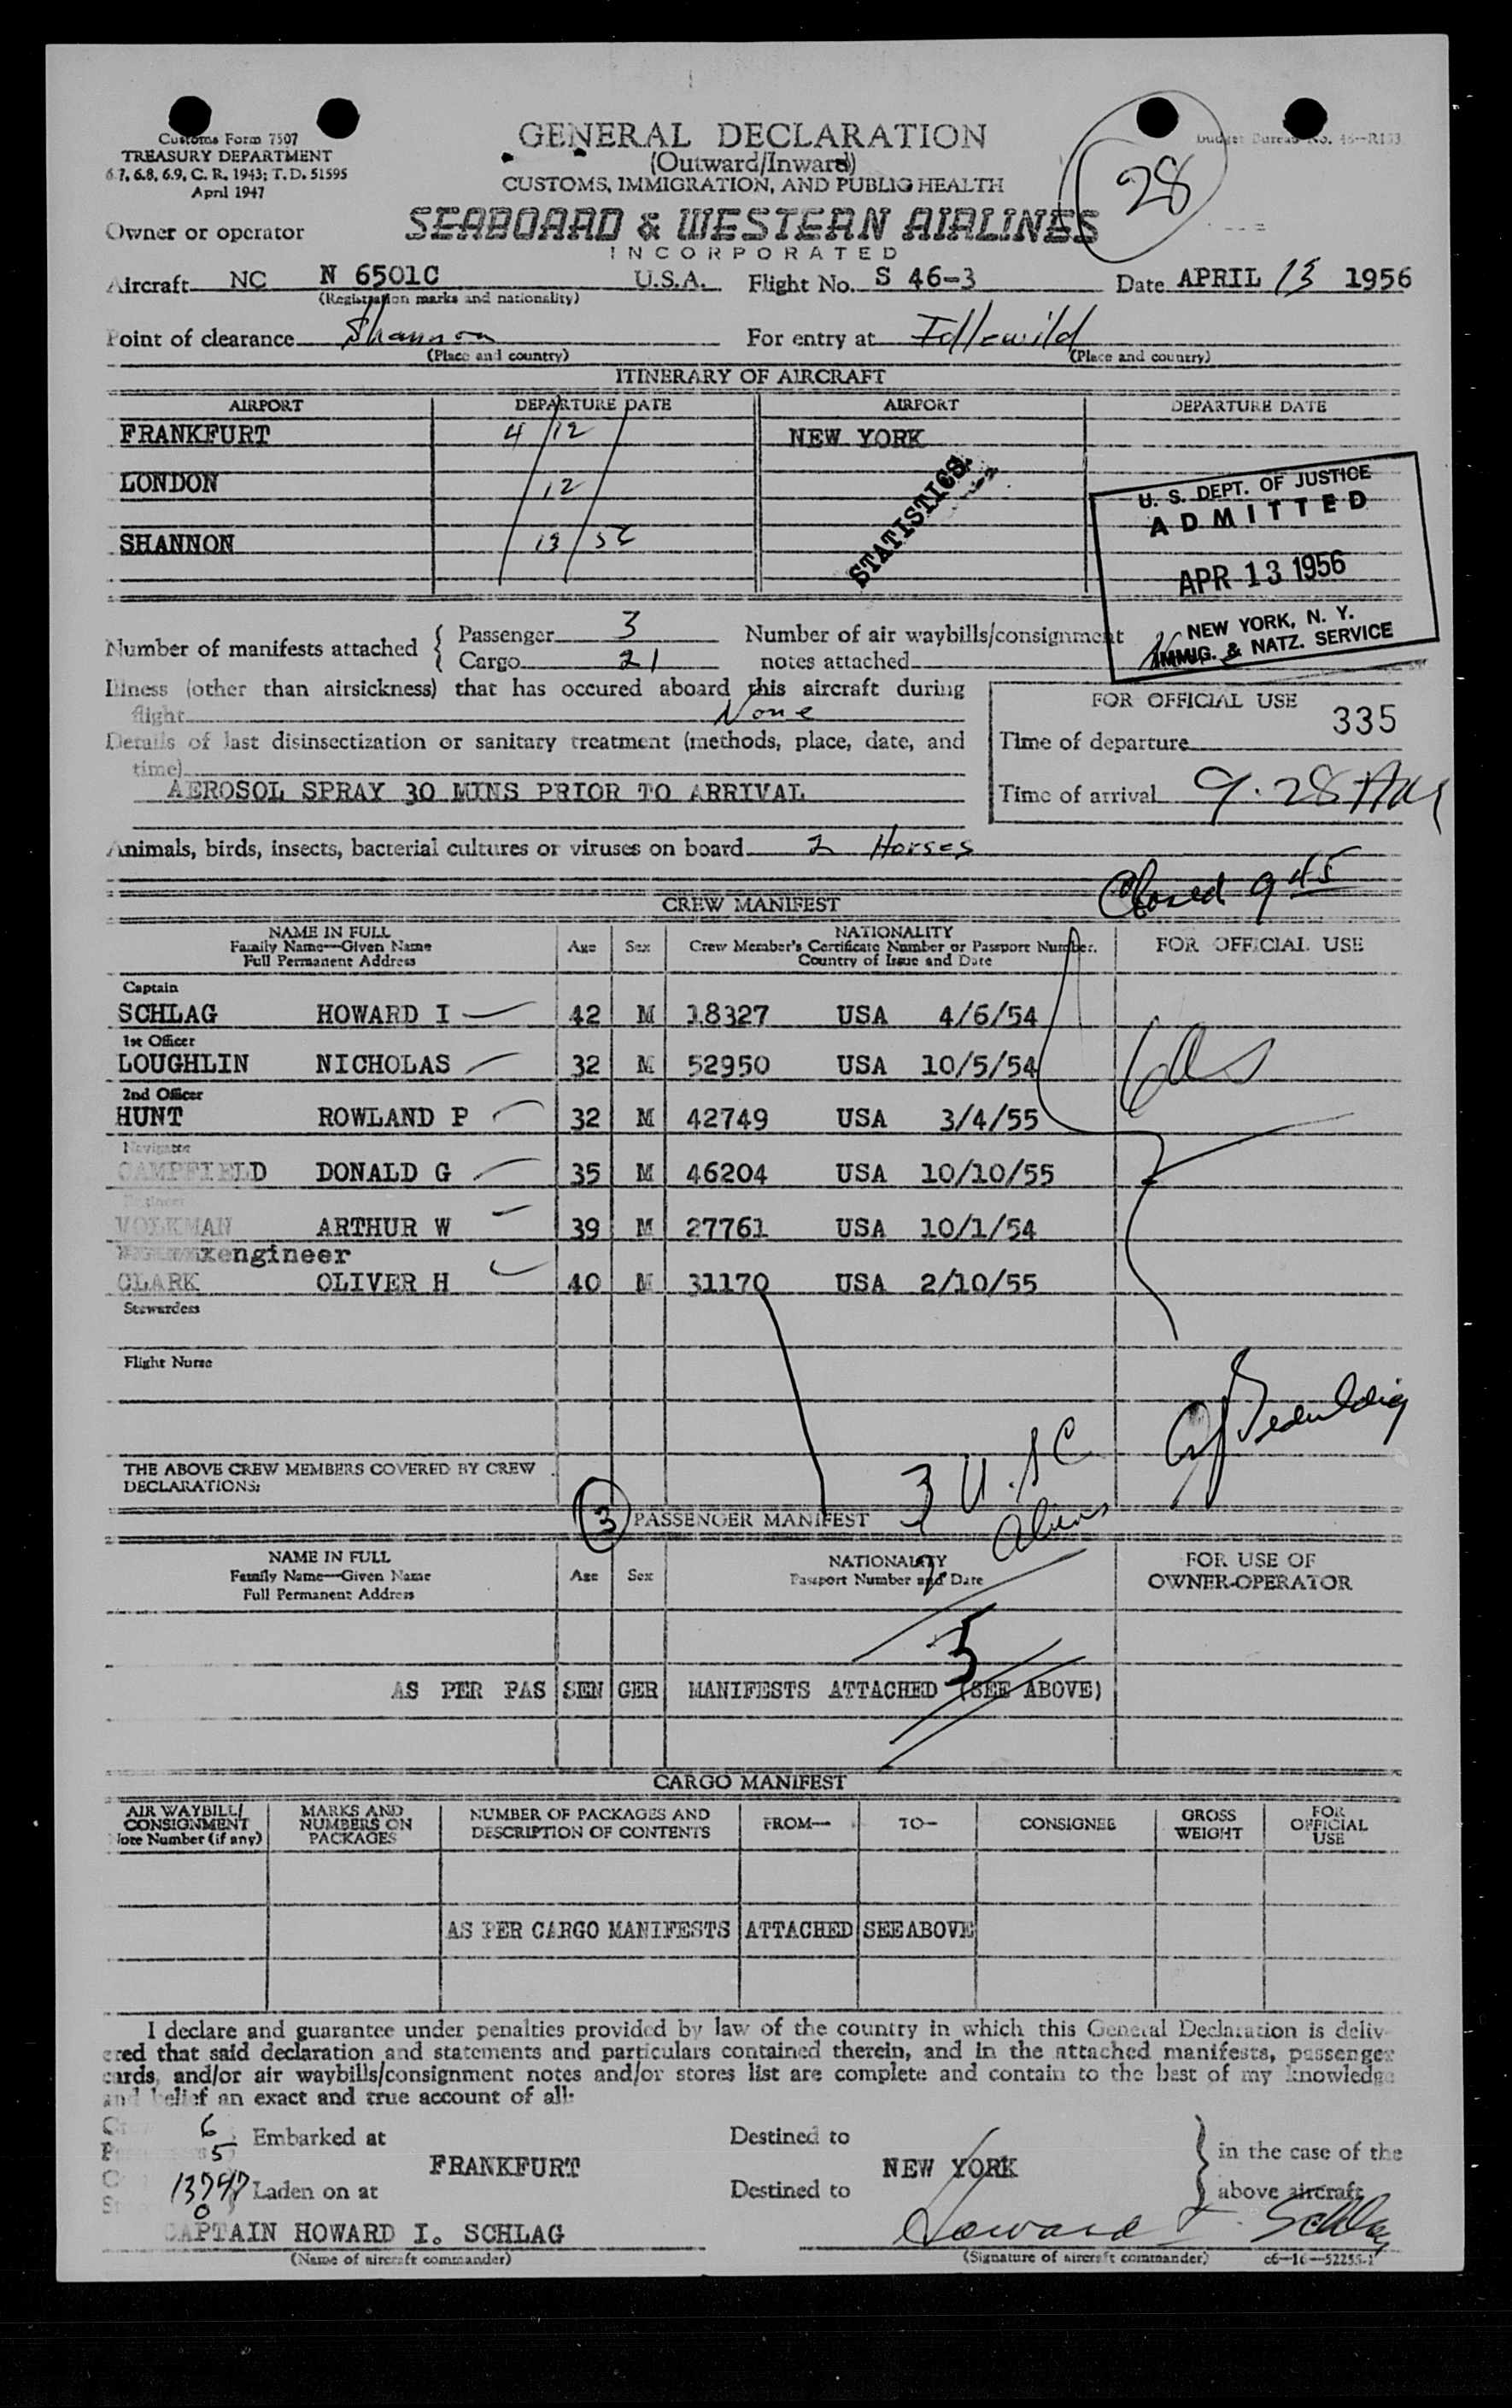 Customs Form 7507
TREASURY DEPARTMENT
6.7, 6.8, 6.9, C. R. 1943; T. D. 51595
April 1947
GENERAL DECLARATION
(Outward/Inward)
CUSTOMS, IMMIGRATION, AND PUBLIC HEALTH
Budget Bureau No. 46-R133
28
Owner or operator
SEABOARD & WESTERN AIRLINES
INCORPORATED
Aircraft NC N 6501C U.S.A. Flight No. S 46-3 Date APRIL 13 1956
(Registration marks and nationality)
Point of clearance Shannon For entry at Idlewild
(Place and country) (Place and country)
ITINERARY OF AIRCRAFT
AIRPORT DEPARTURE DATE AIRPORT DEPARTURE DATE
FRANKFURT 4/12/ NEW YORK
LONDON 12
SHANNON 13/56
STATISTICS
U. S. DEPT. OF JUSTICE
ADMITTED
APR 13 1956
NEW YORK, N. Y.
IMMIG. & NATZ. SERVICE
Number of manifests attached { Passenger 3 Number of air waybills/consignment
Cargo 21 notes attached
Illness (other than airsickness) that has occured aboard this aircraft during
flight None
Details of last disinsectization or sanitary treatment (methods, place, date, and
time)
AEROSOL SPRAY 30 MINS PRIOR TO ARRIVAL
FOR OFFICIAL USE
335
Time of departure
Time of arrival 9.28 AM
Animals, birds, insects, bacterial cultures or viruses on board 2 Horses
Closed 9 45
CREW MANIFEST
NAME IN FULL
Family Name—Given Name
Full Permanent Address
Age Sex
NATIONALITY
Crew Member's Certificate Number or Passport Number.
Country of Issue and Date
FOR OFFICIAL USE
Captain
SCHLAG HOWARD I 42 M 18327 USA 4/6/54
1st Officer
LOUGHLIN NICHOLAS 32 M 52950 USA 10/5/54
2nd Officer
HUNT ROWLAND P 32 M 42749 USA 3/4/55
Navigator
CAMPFIELD DONALD G 35 M 46204 USA 10/10/55
Engineer
VOLKMAN ARTHUR W 39 M 27761 USA 10/1/54
engineer
CLARK OLIVER H 40 M 31170 USA 2/10/55
Stewardess
Flight Nurse
THE ABOVE CREW MEMBERS COVERED BY CREW
DECLARATIONS:
3 U.S.C
Aliens
3 PASSENGER MANIFEST
NAME IN FULL
Family Name—Given Name
Full Permanent Address
Age Sex
NATIONALITY
Passport Number and Date
FOR USE OF
OWNER-OPERATOR
5
AS PER PASSENGER MANIFESTS ATTACHED (SEE ABOVE)
CARGO MANIFEST
AIR WAYBILL/
CONSIGNMENT
Note Number (if any)
MARKS AND
NUMBERS ON
PACKAGES
NUMBER OF PACKAGES AND
DESCRIPTION OF CONTENTS
FROM— TO— CONSIGNEE
GROSS
WEIGHT
FOR
OFFICIAL
USE
AS PER CARGO MANIFESTS ATTACHED SEE ABOVE
I declare and guarantee under penalties provided by law of the country in which this General Declaration is deliv-
ered that said declaration and statements and particulars contained therein, and in the attached manifests, passenger
cards, and/or air waybills/consignment notes and/or stores list are complete and contain to the best of my knowledge
and belief an exact and true account of all:
6 Embarked at Destined to in the case of the
5
FRANKFURT NEW YORK
13747 Laden on at Destined to above aircraft
0
CAPTAIN HOWARD I. SCHLAG Howard I. Schlag
(Name of aircraft commander) (Signature of aircraft commander) c6—16—52255-1